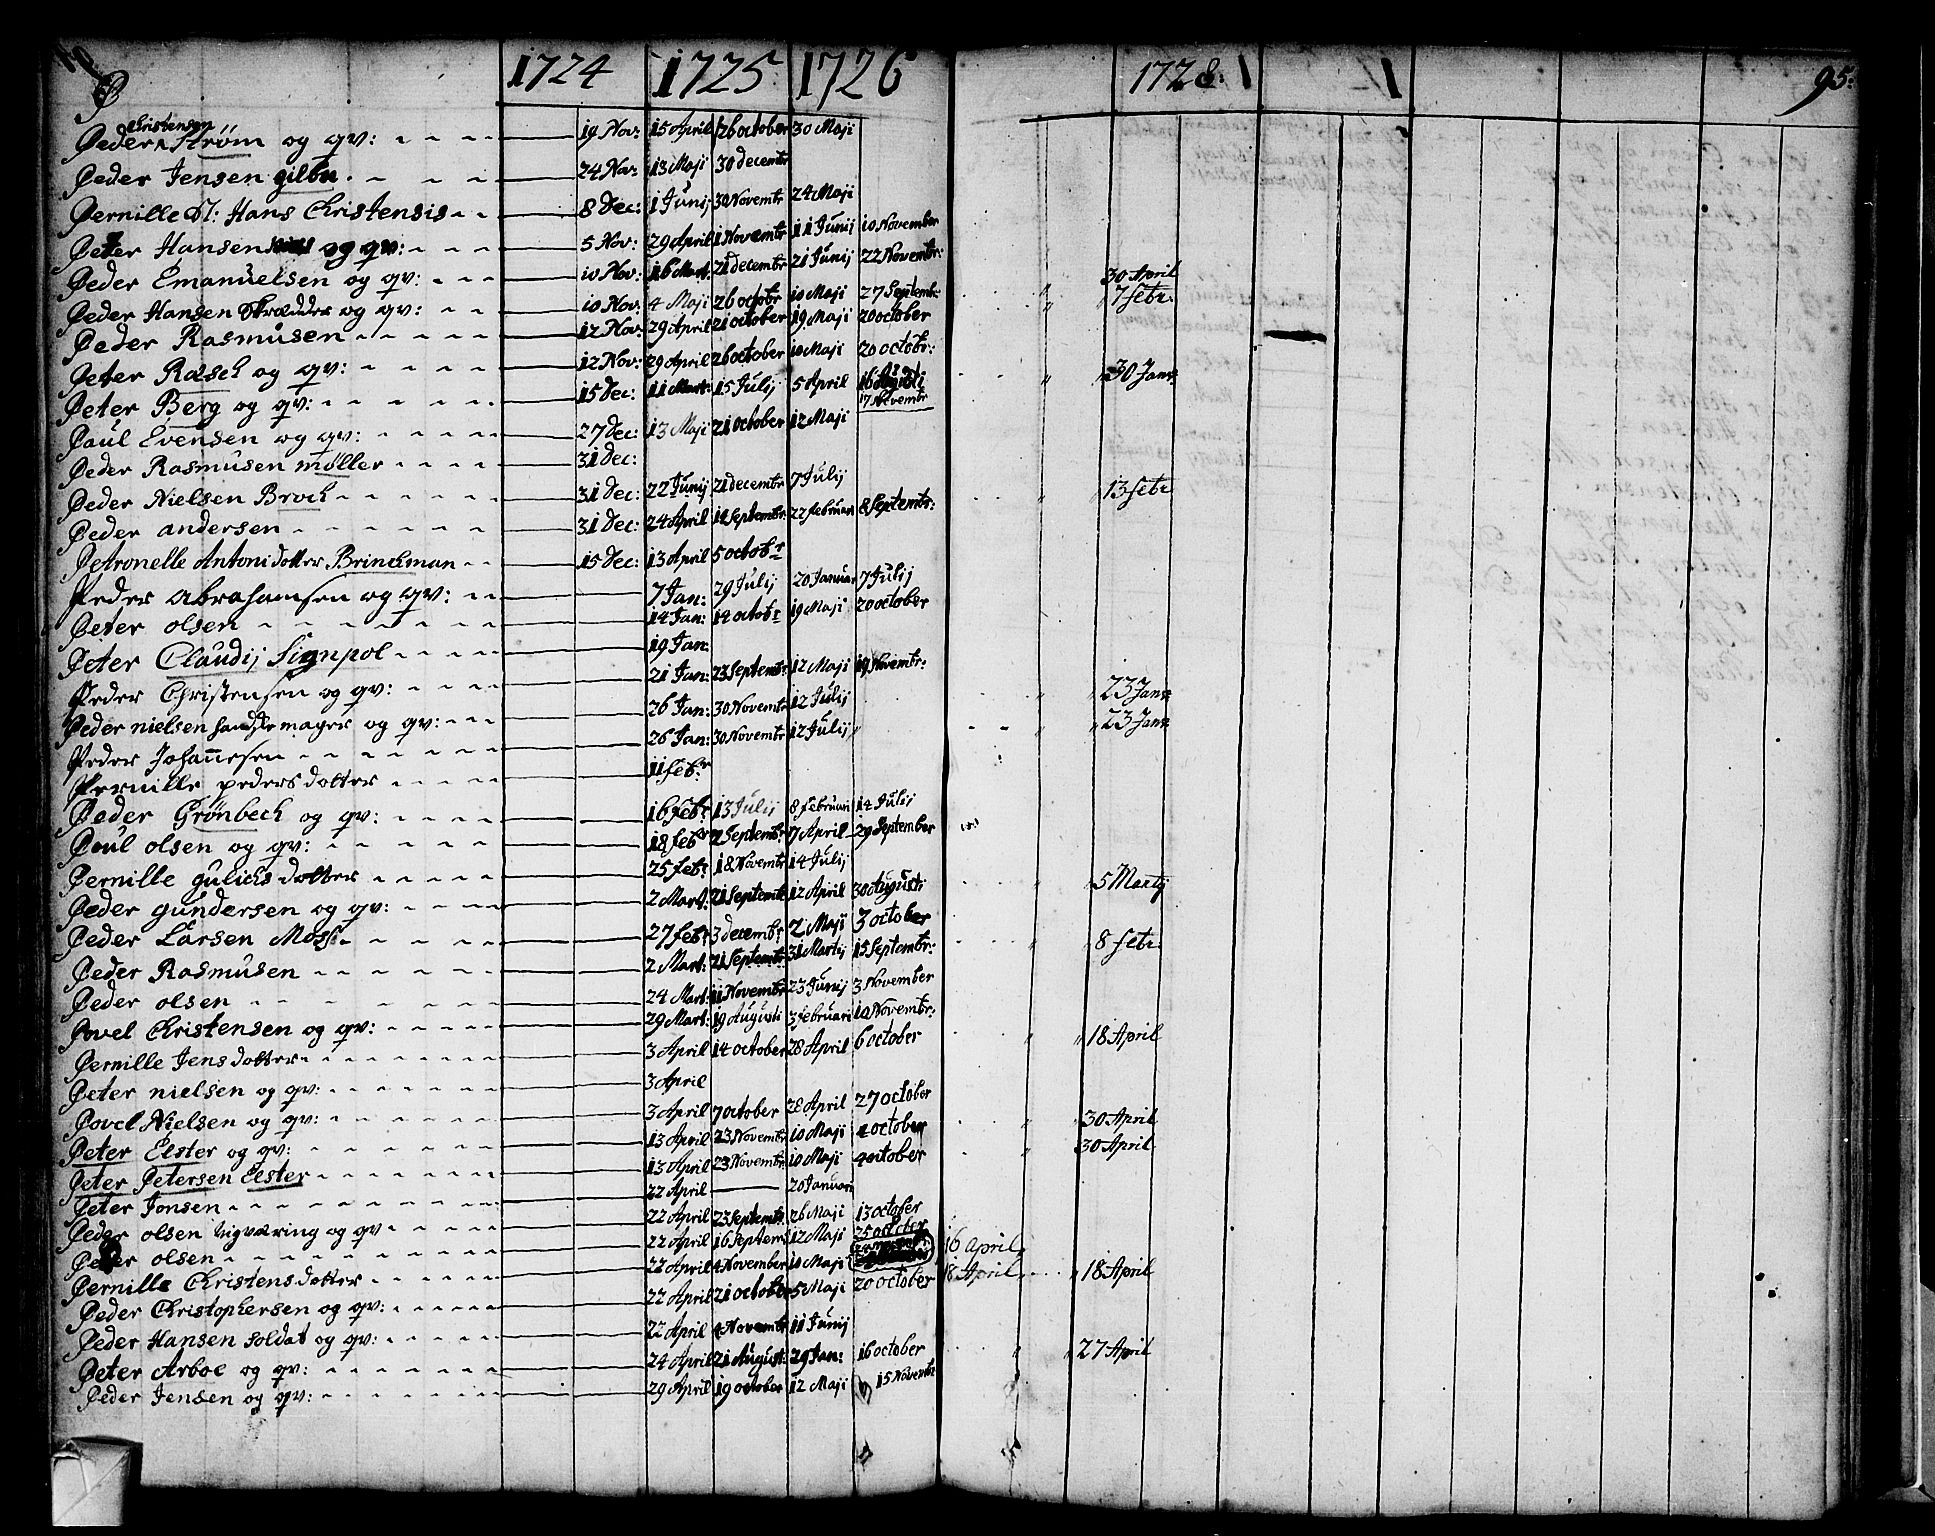 1724 1725 1726 1728: 95:
P
Christensen
Peder Strøm og qv: 19 Nov: 15 April 26 october 30 Maji
Peder Jensen gilbu 24 Nov: 13 Maji 30 decembr
Pernille Sl: Hans Christensis 8 Dec: 1 Junij 30 Novembr 24 Maji
Peter Hansen og qv: 5 Nov: 29 April 1 Novembr 11 Junij 10 November
Peder Emanuelsen og qv: 10 Nov: 16 Mart: 21 decembr 21 Junij 22 Novembr: 30 April
Peder Hansen Skrædder og qv: 10 Nov: 4 Maji 26 octobr 10 Maji 27 Septembr: 7 febr:
Peder Rasmusen 12 Nov: 29 April 21 october 19 Maji 20 october
Peter Rasch og qv: 12 Nov: 29 April 26 october 10 Maji 20 octobr:
Peter Berg og qv: 15 Dec: 11 Mart: 15 Julij 5 April 16 Augusti 30 Janr:
17 Novembr
Paul Evensen og qv: 27 Dec: 13 Maji 21 october 12 Maji
Peder Rasmusen møller 31 Dec:
Peder Nielsen Brock 31 Dec: 22 Junij 21 decembr 7 Julij 13 febr
Peder andersen 31 Dec: 24 April 14 Septembr 22 februar 8 Septembr:
Petronelle Antoni dotter Brinckman 15 Dec: 13 April 5 octobr
Peder abrahamsen og qv: 7 Jan: 29 Julij 20 Januar 7 Julij
Peter olsen 14 Jan: 14 octobr 19 Maji 20 october
Peter Claudij Signpol 19 Jan:
Peder Christensen og qv: 21 Jan: 23 Septembr: 12 Maji 19 Novembr: 23 Janr
Peder nielsen handskemager og qv: 26 Jan: 30 Novembr 12 Julij 23 Janr
Peder Johannesen 26 Jan: 30 Novembr 12 Julij
Pernille peders dotter 11 febr
Peder Grønbech og qv: 16 febr 13 Julij 8 februari 14 Julij
Poul olsen og qv: 18 febr 2 Septembr 17 April 29 September
Pernille gulichs dotter 25 febr 18 Novembr 14 Julij
Peder gundersen og qv: 2 Mart: 21 Septembr 12 April 30 Augusti 5 Martij
Peder Larsen Moss 27 febr 3 decembr 2 Maji 3 october
Peder Rasmusen 2 Mart: 21 Septembr 31 Martij 15 Septembr: 8 febr:
Peder olsen 24 Mart: 11 Novembr 23 Junij 3 November
Povel Christensen og qv: 29 Mart: 19 Augusti 3 februari 10 Novembr:
Pernille Jens dotter 3 April 14 october 28 April 6 october 18 April
Peter nielsen og qv: 3 April
Povel Nielsen og qv: 3 April 7 october 28 April 27 october
Peter Elster og qv: 13 April 23 Novembr 10 Maji 4 october 30 April
Peter Petersen Elster 13 April 23 Novembr 10 Maji 4 october 30 April
Peter Jonsen 22 April 20 Januari
Peder olsen Vigværing og qv 22 April 23 Septembr 26 Maji 13 october
Peder olsen 22 April 16 Septembr 12 Maji 25 october
Pernille Christens dotter 22 April 4 November 10 Maji 16 April
Peder Christophersen og qv: 22 April 21 october 5 Maji 20 october 18 April 18 April
Peder Hansen soldat og qv: 22 April 4 Novembr 11 Junij
Peter Arboe og qv: 24 April 21 August: 29 Jan: 16 october 27 April
Peder Jensen og qv: 29 April 19 october 12 Maji 15 Novembr